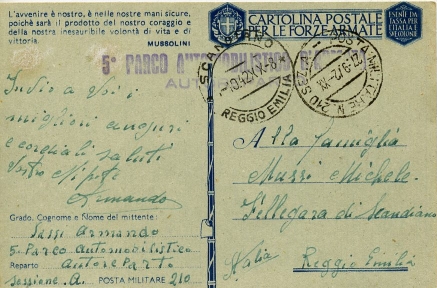 L'avvenire è nostro, è nelle nostre mani sicure,
poichè sarà il prodotto del nostro coraggio e
della nostra inesauribile volontà di vita e di
vittoria.
MUSSOLINI
CARTOLINA POSTALE
PER LE FORZE ARMATE
ESENTE DA
TASSA PER
L'ITALIA E
COLONIE
5° PARCO AUTOMOBILISTICO
SCANDIANO
REGGIO EMILIA
POSTA MILITARE N.
Invio a voi i
migliori auguri
e cordiali saluti
Vostro Nipote
Armando
Grado, Cognome e Nome del mittente:
Sassi Armando
5° Parco Automobilistico
Reparto Autore Parto
Sessione. A. POSTA MILITARE 210
Alla Famiglia
Mussi Michele
Fellegara di Scandiano
Reggio Emilia
Italia